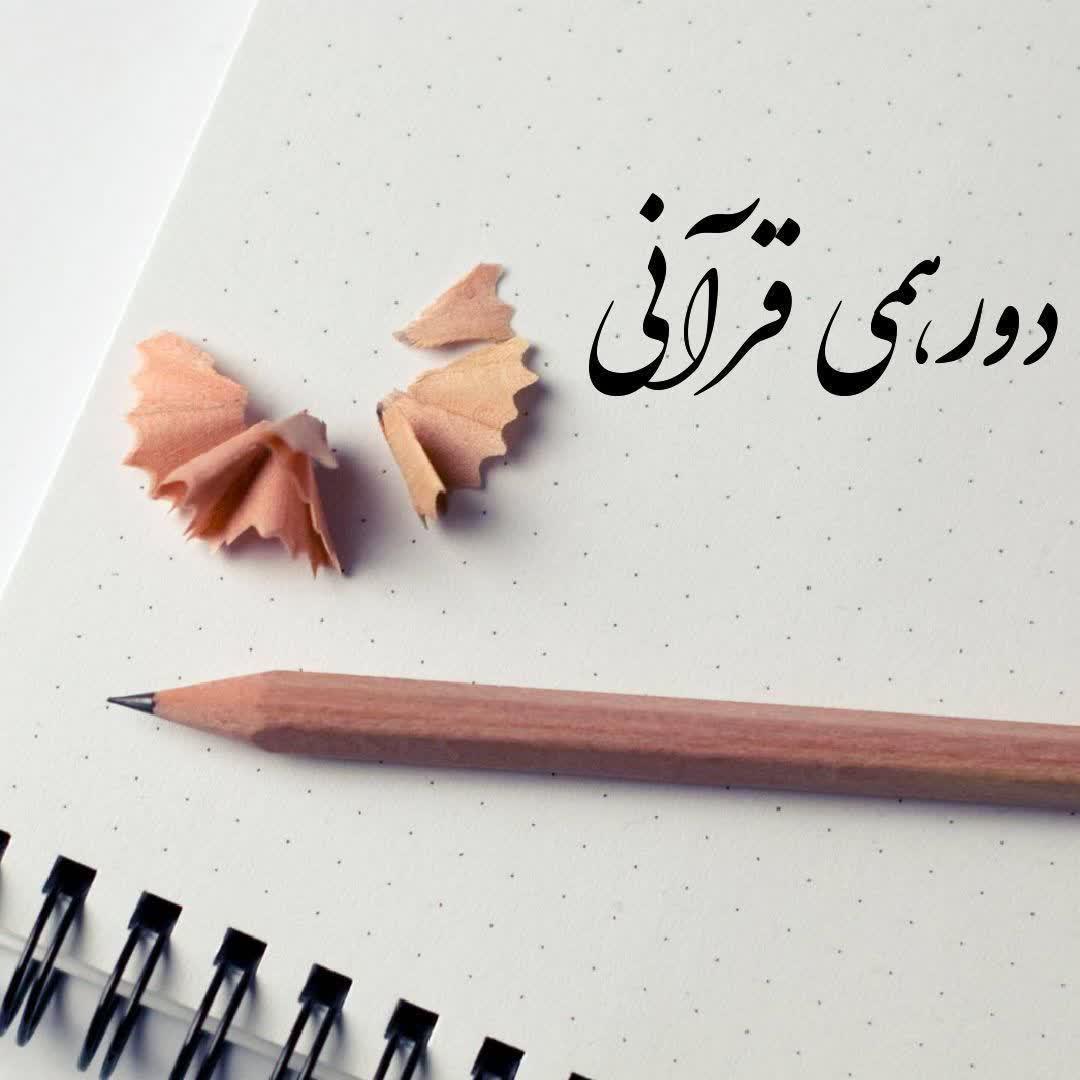 دورهمی قرآنی